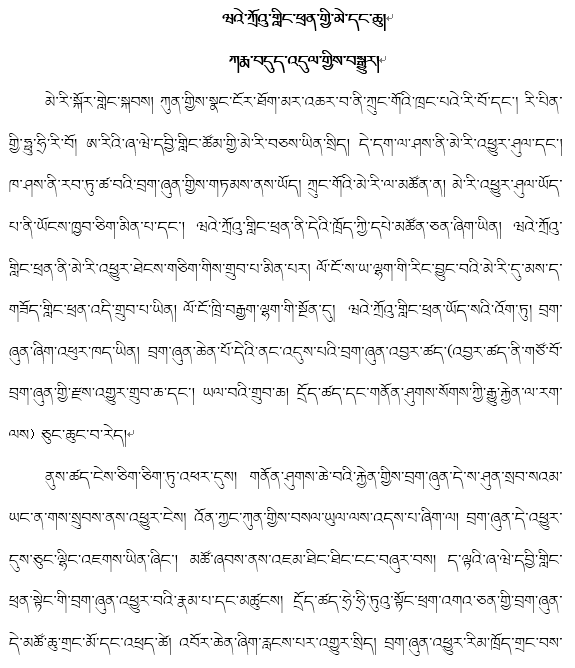 ཝའེ་ཀྲོའུ་གླིང་ཕྲན་གྱི་མེ་དང་ཆུ།
ཀརྨ་བདུད་འདུལ་གྱིས་བསྒྱུར།
མེ་རི་སྐོར་གླེང་སྐབས། ཀུན་གྱིས་སྣང་ངོར་ཐོག་མར་འཆར་བ་ནི་ཀྲུང་གོའི་ཁྲང་པའེ་རི་བོ་དང་། རི་པིན་
གྱི་ཧྥུ་ཧྲི་རི་བོ། ཨ་རིའི་ཞ་ཝེ་དབྱི་གླིང་ཚོམ་གྱི་མེ་རི་བཅས་ཡིན་སྲིད། དེ་དག་ལ་ཤས་ནི་མེ་རི་འཕྱུར་ཤུལ་དང་།
ཁ་ཤས་ནི་རབ་ཏུ་ཚ་བའི་བྲག་ཞུན་གྱིས་གཏམས་ནས་ཡོད། ཀྲུང་གོའི་མེ་རི་ལ་མཚོན་ན། མེ་རི་འཕྱུར་ཤུལ་ཡོད་
པ་ནི་ཡོངས་ཁྱབ་ཅིག་མིན་པ་དང་། ཝའེ་ཀྲོའུ་གླིང་ཕྲན་ནི་དེའི་ཁྲོད་ཀྱི་དཔེ་མཚོན་ཅན་ཞིག་ཡིན། ཝའེ་ཀྲོའུ་
གླིང་ཕྲན་ནི་མེ་རི་འཕྱུར་ཐེངས་གཅིག་གིས་གྲུབ་པ་མིན་པར། ལོ་ངོ་ས་ཡ་ལྷག་གི་རིང་བྱུང་བའི་མེ་རི་དུ་མས་ད་
གཟོད་གླིང་ཕྲན་འདི་གྲུབ་པ་ཡིན། ལོ་ངོ་ཁྲི་བརྒྱག་ལྷག་གི་སྔོན་དུ། ཝའེ་ཀྲོའུ་གླིང་ཕྲན་ཡོད་སའི་འོག་ཏུ། བྲག་
ཞུན་ཞིག་འཕུར་ཁད་ཡིན། བྲག་ཞུན་ཆེན་པོ་དེའི་ནང་འདུས་པའི་བྲག་ཞུན་འབྱར་ཚད་(འབྱར་ཚད་ནི་གཙོ་བོ་
བྲག་ཞུན་གྱི་རྫས་འགྱུར་གྲུབ་ཆ་དང་། ཡལ་བའི་གྲུབ་ཆ། དྲོད་ཚད་དང་གནོན་ཤུགས་སོགས་ཀྱི་རྒྱུ་རྐྱེན་ལ་རག་
ལས) ཅུང་ཆུང་བ་རེད།
ནུས་ཚད་ངེས་ཅིག་ཅིག་ཏུ་འཕར་དུས། གནོན་ཤུགས་ཆེ་བའི་རྐྱེན་གྱིས་བྲག་ཞུན་དེ་ས་ཤུན་སྲབ་སའམ་
ཡང་ན་གས་སྲུབས་ནས་འཕྱུར་ངེས། འོན་ཀྱང་ཀུན་གྱིས་བསལ་ཡུལ་ལས་འདས་པ་ཞིག་ལ། བྲག་ཞུན་དེ་འཕྱུར་
དུས་ཅུང་ལྷིང་འཇགས་ཡིན་ཞིང་། མཚོ་ཞབས་ནས་འཇམ་ཐིང་ཐིང་ངང་བཞུར་བས། ད་ལྟའི་ཞ་ཝེ་དབྱི་གླིང་
ཕྲན་སྟེང་གི་བྲག་ཞུན་འཕྱུར་བའི་རྣམ་པ་དང་མཚུངས། དྲོད་ཚད་ཧྲེ་ཧྲི་ཏུའུ་སྟོང་ཕྲག་འགའ་ཅན་གྱི་བྲག་ཞུན་
དེ་མཚོ་ཆུ་གྲང་མོ་དང་འཕྲད་ཚེ། འབོར་ཆེན་ཞིག་རླངས་པར་འགྱུར་སྲིད། བྲག་ཞུན་འཕྱུར་རིམ་ཁྲོད་གྲང་བས་